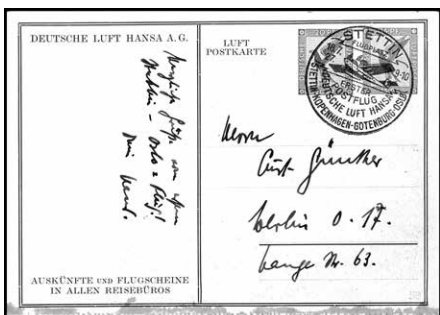 DEUTSCHE LUFT HANSA A.G.
Stettin – Oslo = Flug!
AUSKÜNFTE UND FLUGSCHEINE
IN ALLEN REISEBÜROS
LUFT
POSTKARTE
STETTIN
FLUGPLATZ
ERSTER
POSTFLUG
DEUTSCHE LUFT HANSA
STETTIN-KOPENHAGEN-GOTENBURG-OSLO
Herrn
Curt Günther
Berlin O. 17.
Lange Str. 63.